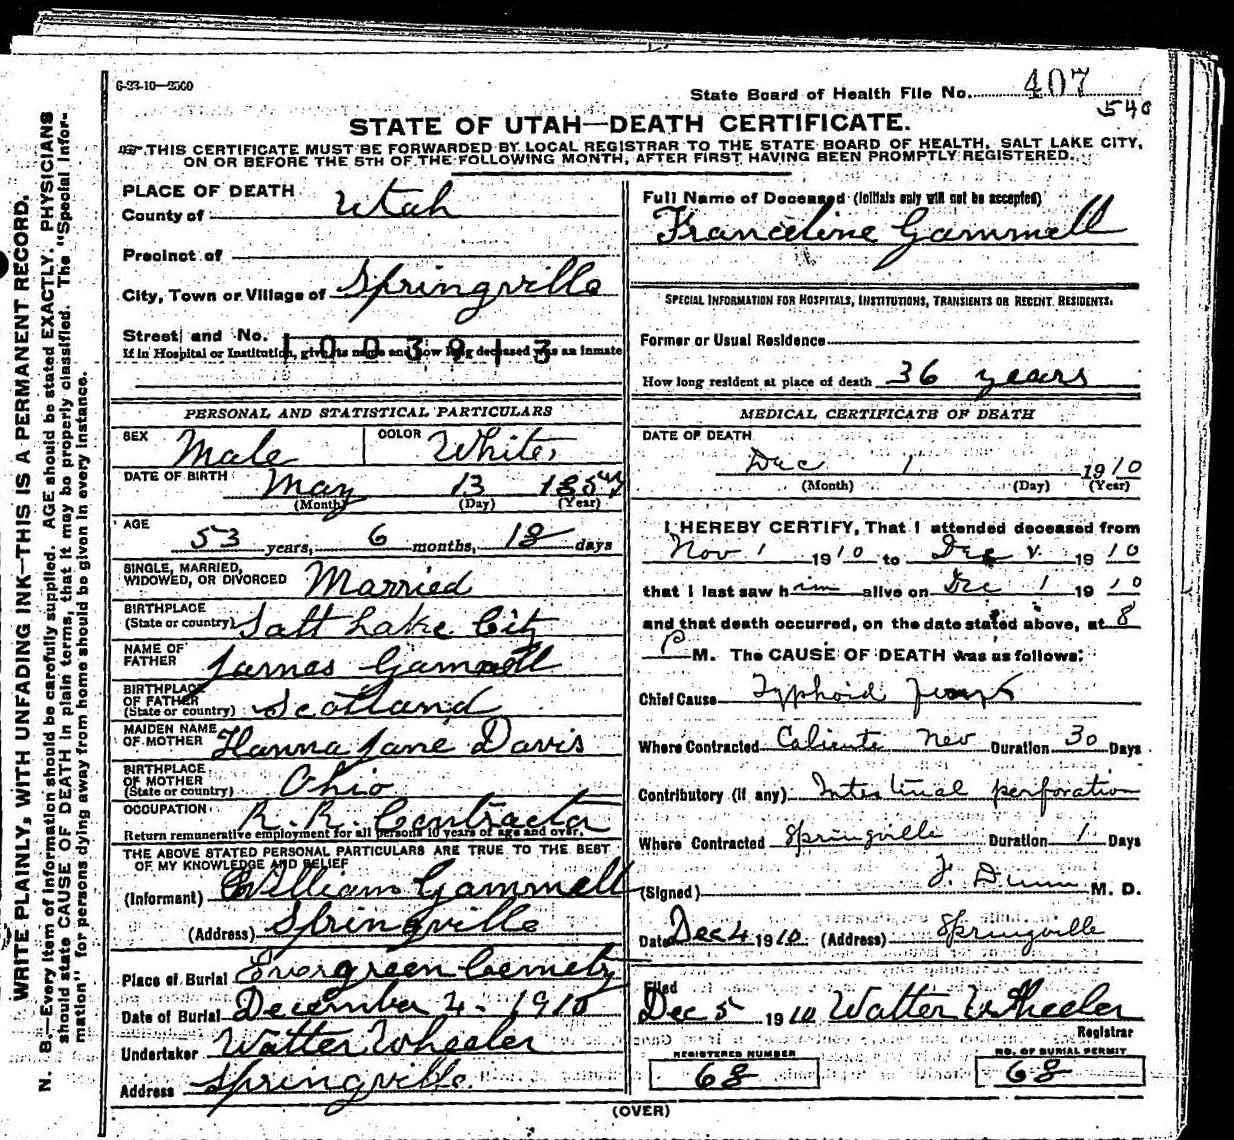 6-23-10—2500
State Board of Health File No. 407
540
STATE OF UTAH—DEATH CERTIFICATE.
THIS CERTIFICATE MUST BE FORWARDED BY LOCAL REGISTRAR TO THE STATE BOARD OF HEALTH, SALT LAKE CITY,
ON OR BEFORE THE 5TH OF THE FOLLOWING MONTH, AFTER FIRST HAVING BEEN PROMPTLY REGISTERED.
WRITE PLAINLY, WITH UNFADING INK—THIS IS A PERMANENT RECORD.
N. B.—Every item of information should be carefully supplied. AGE should be stated EXACTLY. PHYSICIANS
should state CAUSE OF DEATH in plain terms, that it may be properly classified. The "Special Infor-
mation" for persons dying away from home should be given in every instance.
PLACE OF DEATH
County of Utah
Precinct of
City, Town or Village of Springville
Street and No.
1003913
If in Hospital or Institution, give its name and how long deceased was an inmate
PERSONAL AND STATISTICAL PARTICULARS
SEX Male COLOR White
DATE OF BIRTH May 13 1857
(Month) (Day) (Year)
AGE
53 years, 6 months, 18 days
SINGLE, MARRIED,
WIDOWED, OR DIVORCED Married
BIRTHPLACE
(State or country) Salt Lake City
NAME OF
FATHER James Gammell
BIRTHPLACE
OF FATHER
(State or country) Scotland
MAIDEN NAME
OF MOTHER Hanna Jane Davis
BIRTHPLACE
OF MOTHER
(State or country) Ohio
OCCUPATION R. R. Contractor
Return remunerative employment for all persons 10 years of age and over.
THE ABOVE STATED PERSONAL PARTICULARS ARE TRUE TO THE BEST
OF MY KNOWLEDGE AND BELIEF
(Informant) William Gammell
(Address) Springville
Place of Burial Evergreen Cemetry
Date of Burial December 4. 1910
Undertaker Walter Wheeler
Address Springville
Full Name of Deceased (Initials only will not be accepted)
Franceline Gammell
SPECIAL INFORMATION FOR HOSPITALS, INSTITUTIONS, TRANSIENTS OR RECENT RESIDENTS.
Former or Usual Residence
How long resident at place of death 36 years
MEDICAL CERTIFICATE OF DEATH
DATE OF DEATH
Dec 1 1910
(Month) (Day) (Year)
I HEREBY CERTIFY, That I attended deceased from
Nov 1 1910 to Dec 1910
that I last saw him alive on Dec 1 1910
and that death occurred, on the date stated above, at 8
P M. The CAUSE OF DEATH was as follows:
Chief Cause Typhoid
Where Contracted Caliente Nev Duration 30 Days
Contributory (if any) Intestinal perforation
Where Contracted Springville Duration 1 Days
(Signed) F. Dunn M. D.
Date Dec 4 1910 (Address) Springville
Filed
Dec 5 1910 Walter Wheeler
Registrar
REGISTERED NUMBER
68
NO. OF BURIAL PERMIT
68
(OVER)